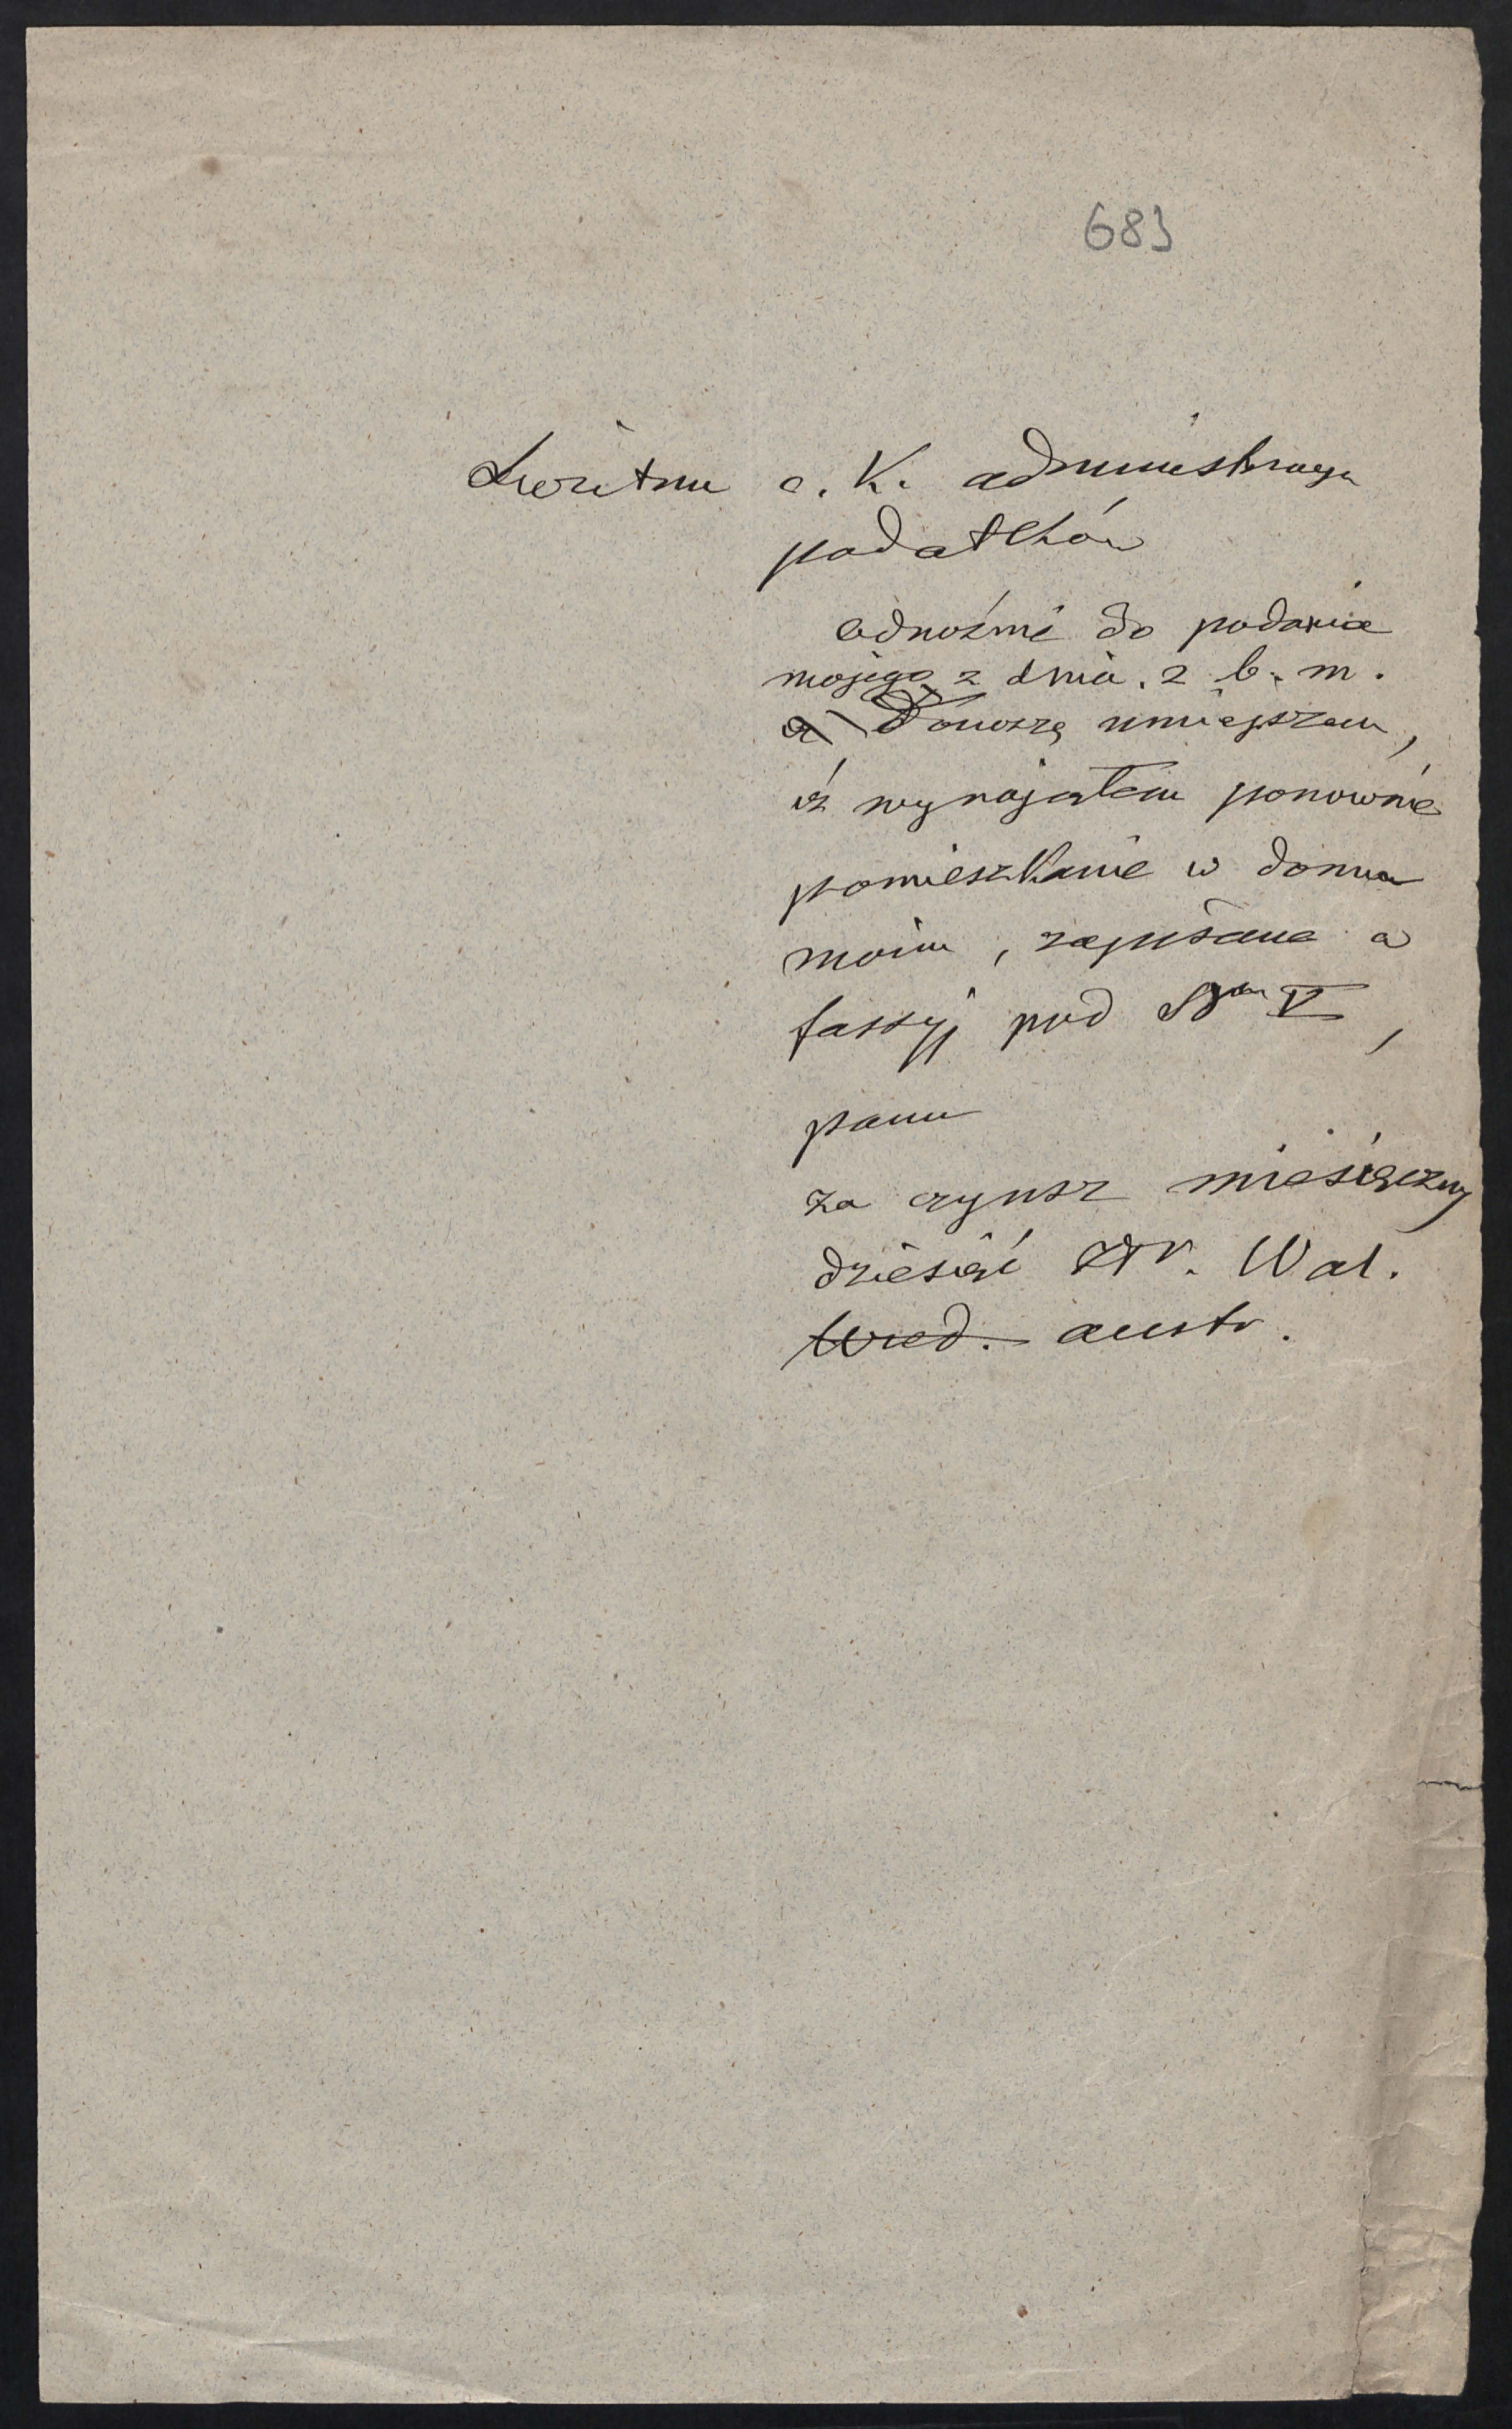 683
Świetna c. K. administracya
podatków
Odnośnie do podania
mojego z dnia. 2 b. m.
Donoszę niniejszem,
iż wynająłem ponownie
pomieszkanie w domu
moim, zapisane w
fassyj pod V,
panu
za czynsz miesięczny
dziesięć złr. Wal.
Wied. austr.